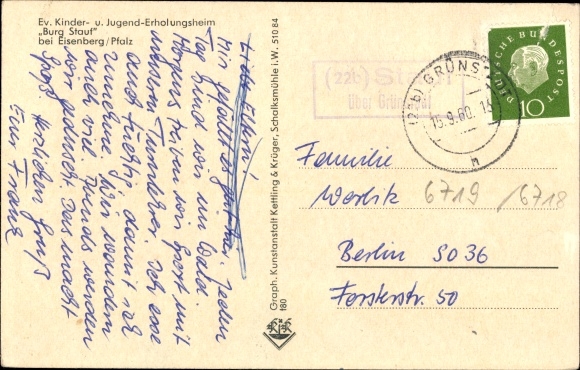 Ev. Kinder- u. Jugend-Erholungsheim
„Burg Stauf"
bei Eisenberg/Pfalz
Liebe Eltern!
Mir gefällt es gut hier. Jeden
Tag sind wir im Wald.
Morgens treiben wir Sport mit
unserem Turnlehrer. Ich esse
auch tüchtig damit ich
zunehme. Wir wandern
auch viel. Abends werden
wir geduscht. Das macht
Spaß. Herzlichen Gruß
Euer Frank
Graph. Kunstanstalt Kettling & Krüger, Schalksmühle i.W. 510 84
180
(22b) Stauf
über Grünstadt
(22b) GRÜNSTADT
15.9.60.14
M
DEUTSCHE BUNDESPOST
10
Familie
Worlitz
6719 / 6718
Berlin SO 36
Forsterstr. 50